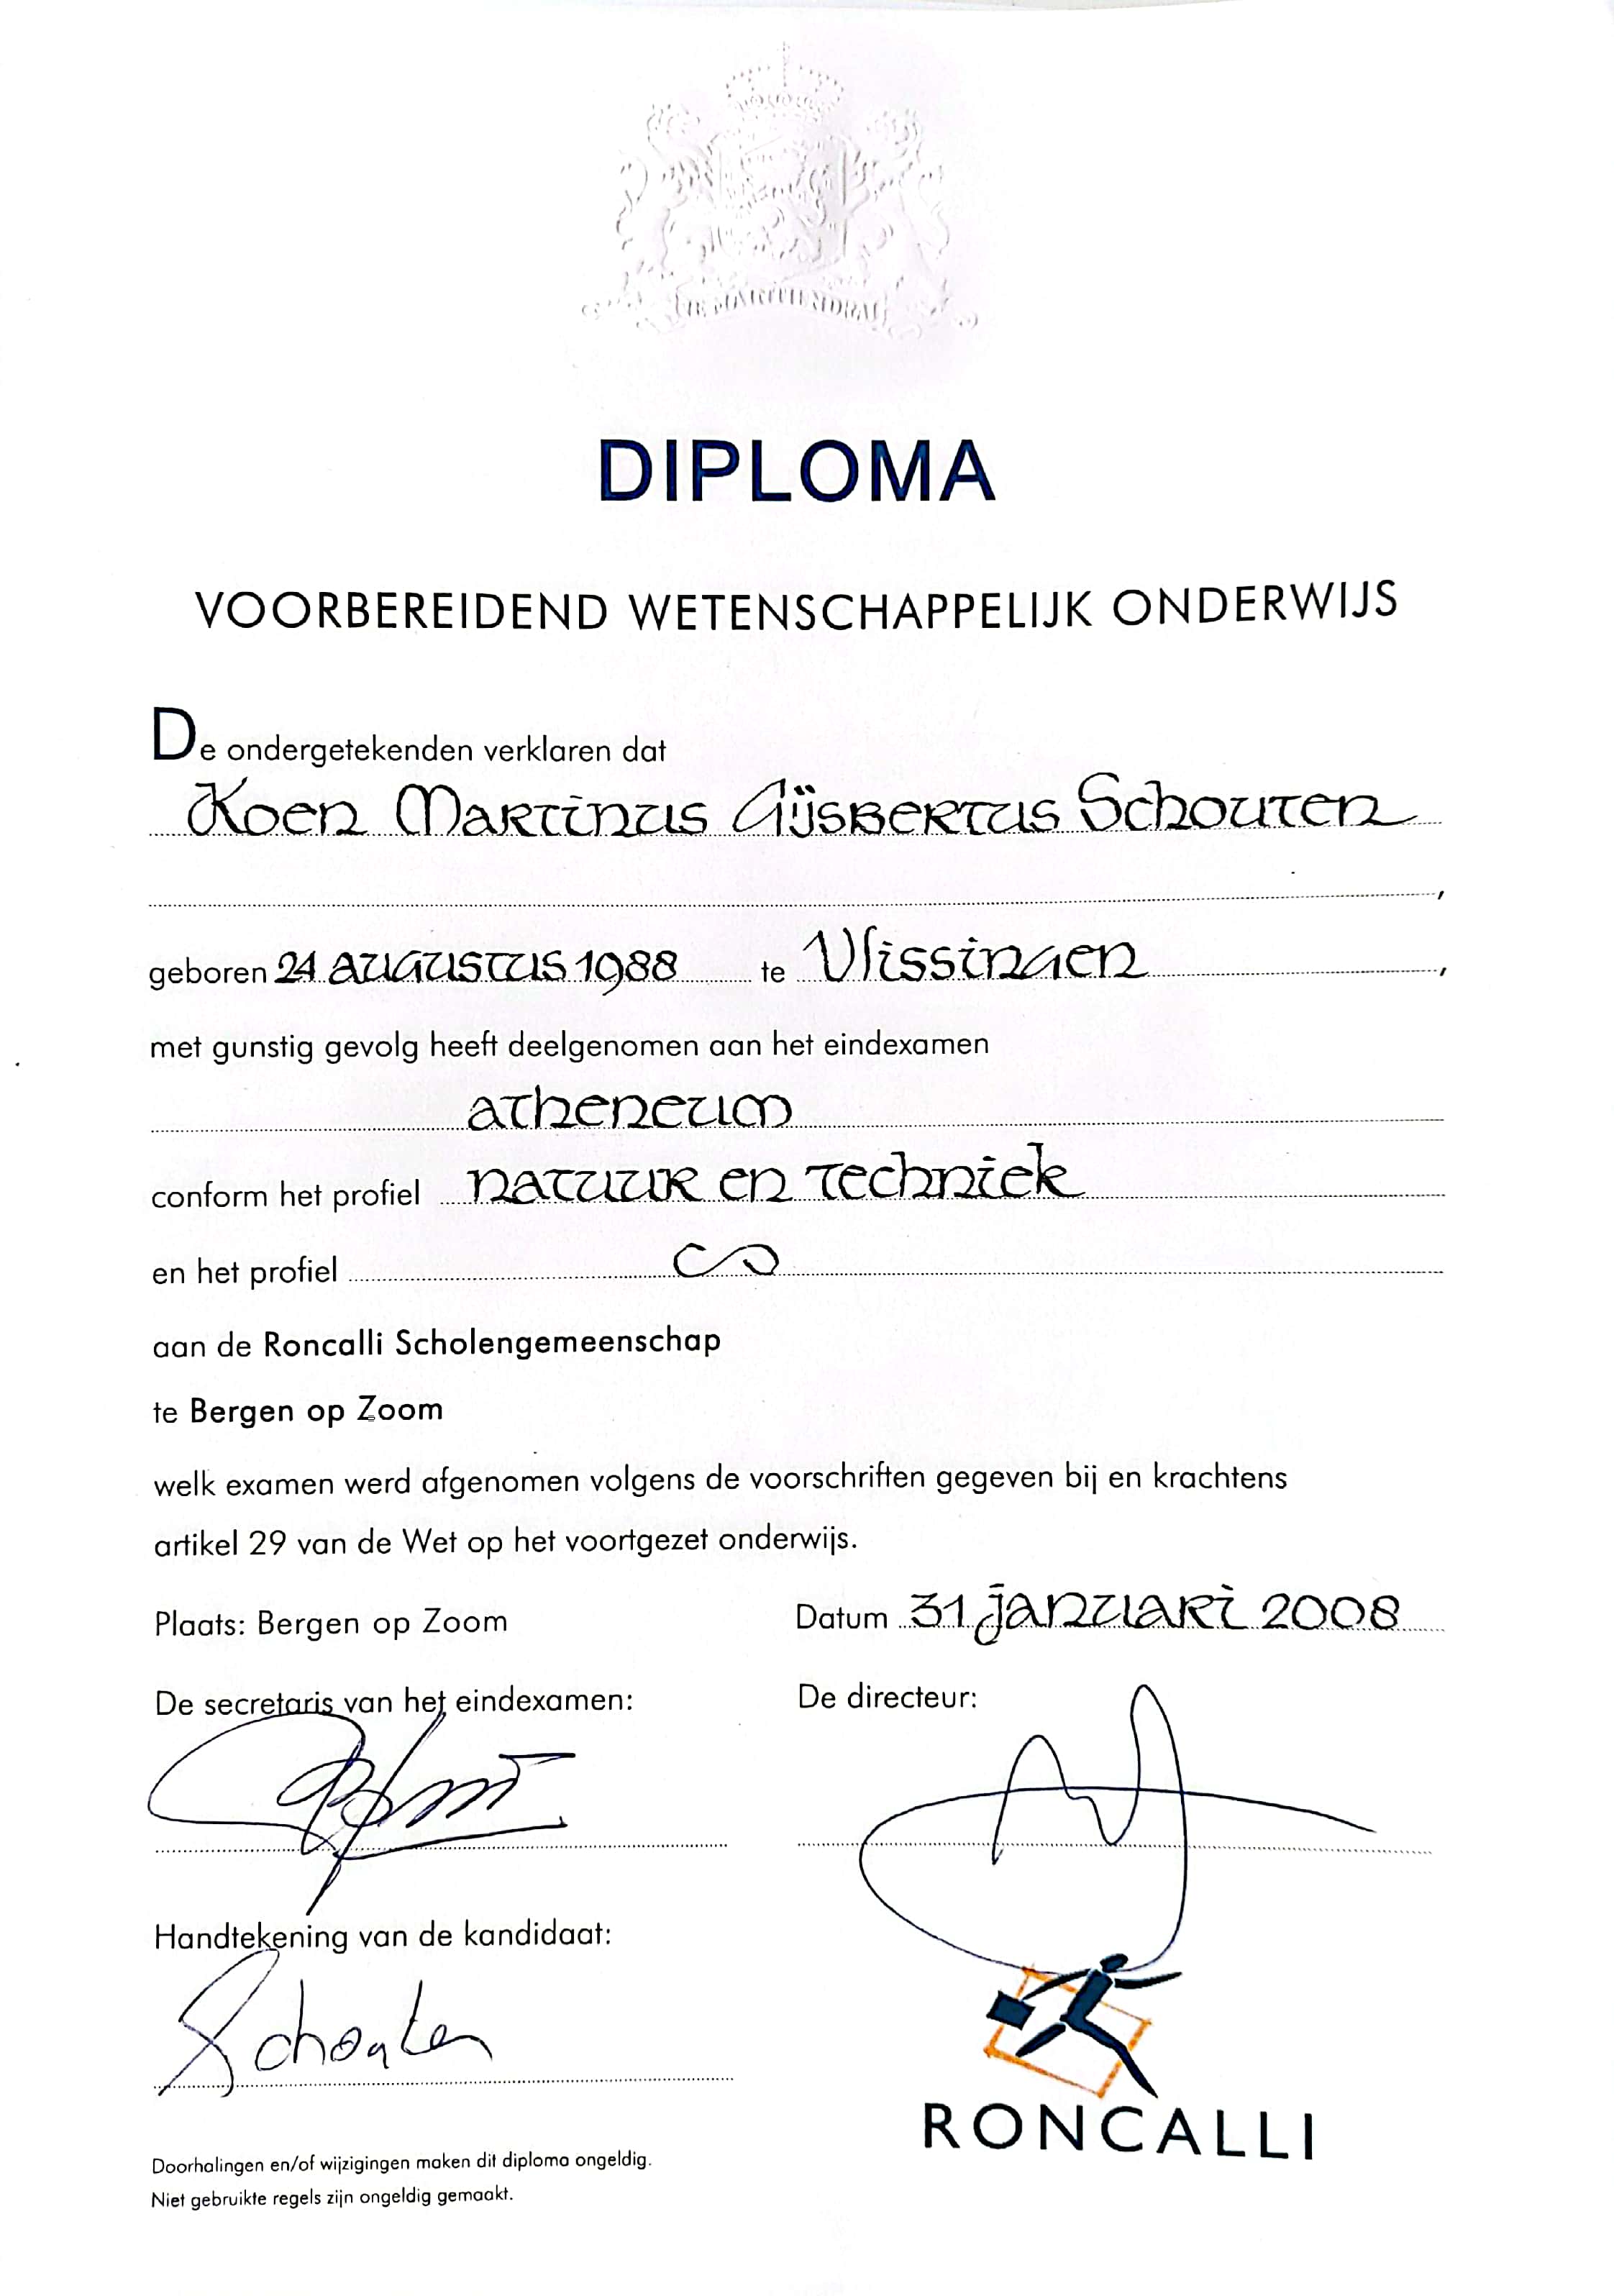 DIPLOMA
VOORBEREIDEND WETENSCHAPPELIJK ONDERWIJS
De ondergetekenden verklaren dat
Koen Martinus Gijsbertus Schouten
,
geboren 24 augustus 1988 te Vlissingen,
met gunstig gevolg heeft deelgenomen aan het eindexamen
atheneum
conform het profiel natuur en techniek
en het profiel
aan de Roncalli Scholengemeenschap
te Bergen op Zoom
welk examen werd afgenomen volgens de voorschriften gegeven bij en krachtens
artikel 29 van de Wet op het voortgezet onderwijs.
Plaats: Bergen op Zoom Datum 31 januari 2008
De secretaris van het eindexamen: De directeur:
Handtekening van de kandidaat:
Schouten
RONCALLI
Doorhalingen en/of wijzigingen maken dit diploma ongeldig.
Niet gebruikte regels zijn ongeldig gemaakt.